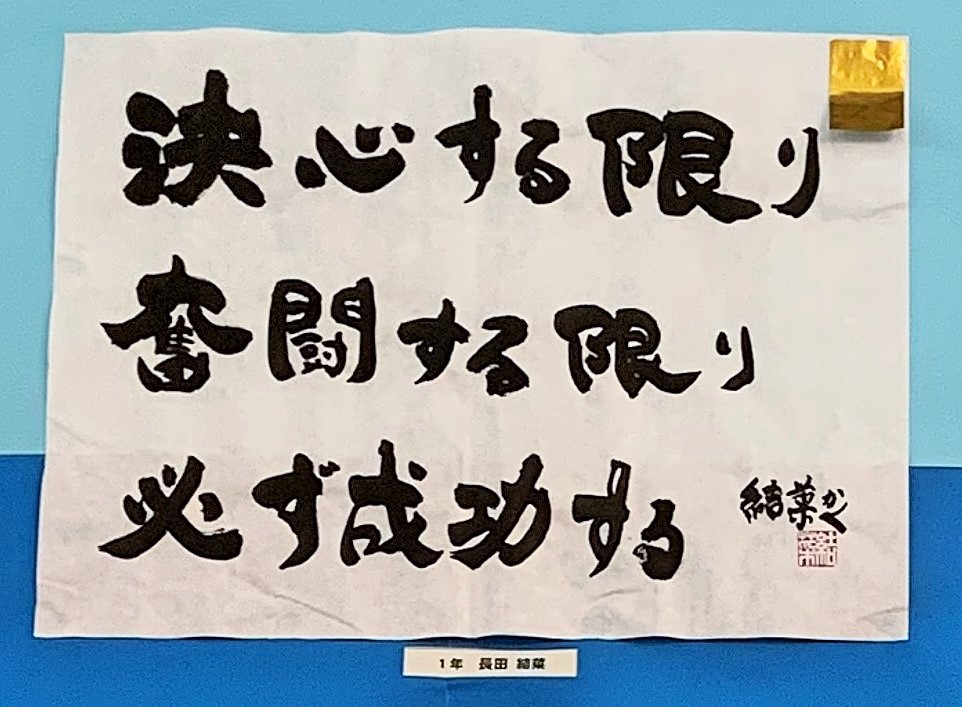 決心する限り
奮闘する限り
必ず成功する
結菜かく
1年 長田 結菜